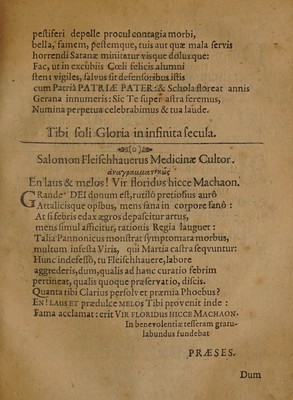 pestiferi depelle procul contagia morbi,
bella, famem, pestemque, tuis aut quæ mala servis
horrendi Satanæ minitatur visque dolusque:
Fac, ut in excubiis Cœli felicis alumni
stent vigiles, salvus sit defensoribus istis
cum Patriâ PATRIÆ PATER: & Schola floreat annis
Gerana innumeris: Sic Te super astra feremus,
Numina perpetua celebrabimus & tua laude.
Tibi soli Gloria in infinita secula.
Salomon Fleischhauerus Medicinæ Cultor.
ἀναγραμματικῶς
En laus & melos! Vir floridus hicce Machaon.
GRande DEI donum est, rutilô pretiosius aurô
Attalicisque opibus, mens sana in corpore sanô:
At si febris edax ægros depascitur artus,
mens simul afficitur, rationis Regia lauguet:
Talia Pannonicus monstrat symptomata morbus,
multum infesta Viris, qui Martia castra sequuntur:
Hunc indefessô, tu Fleischhauere, labore
aggrederis, dum, qualis ad hanc curatio febrim
pertineat, qualis quoque præservatio, discis.
Quanta tibi Clarius persolvet præmia Phœbus?
EN! LAUS ET prædulce MELOS Tibi provenit inde:
Fama acclamat: erit VIR FLORIDUS HICCE MACHAON.
In benevolentiæ tesseram gratu-
labundus fundebat
PRÆSES.
Dum